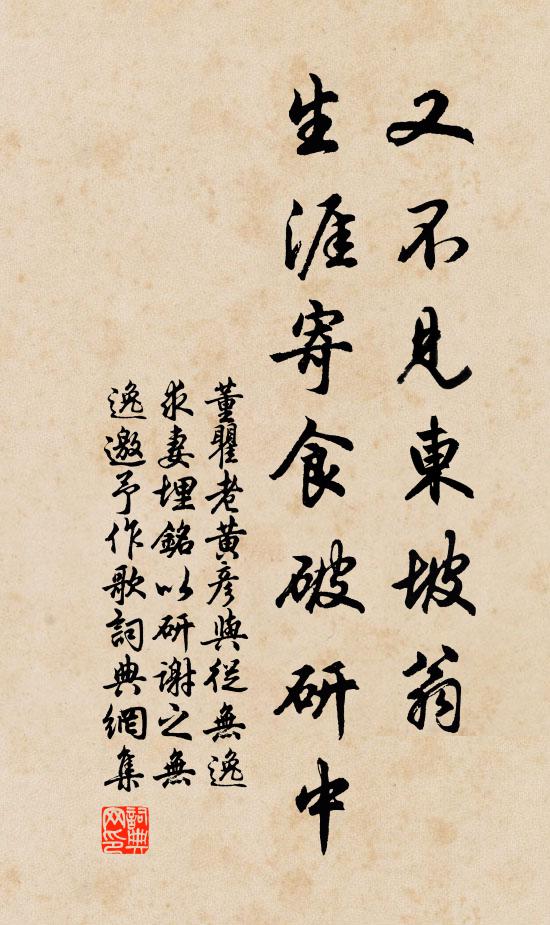 又不見東坡翁
生涯寄食破研中
董瞿老黃彥與從無逸
求妻埋銘以研謝之無
逸邀予作歌詞典網集
詞典网印